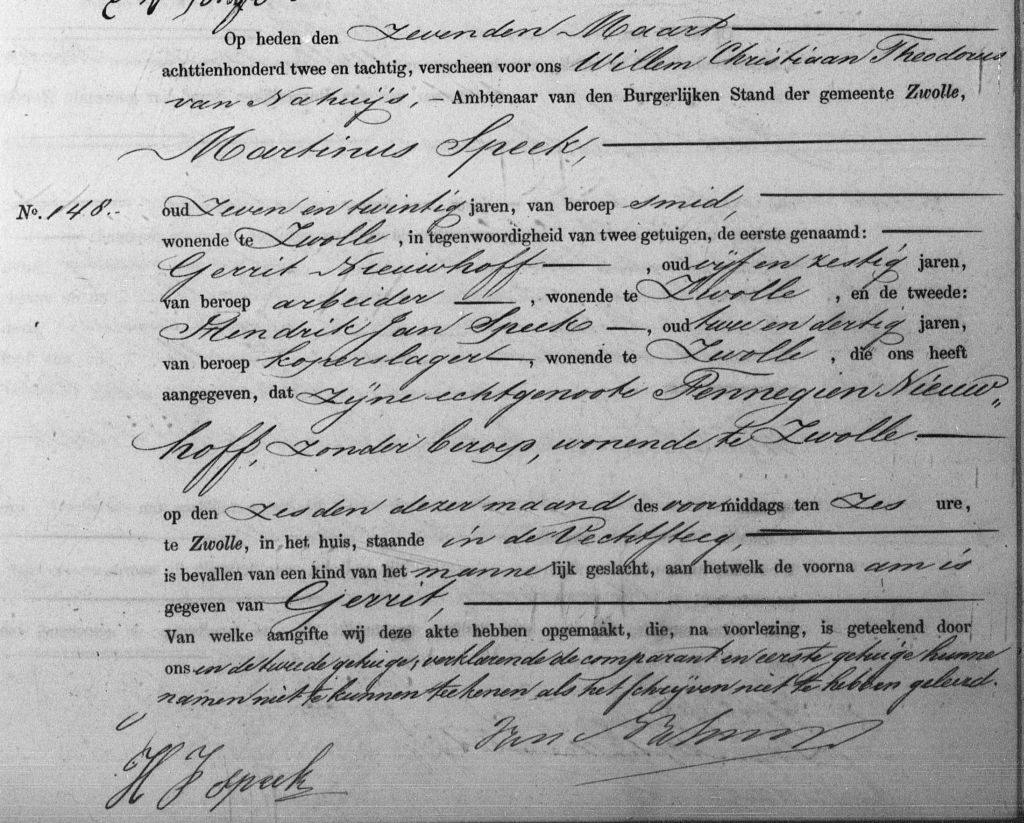 Op heden den Zevenden Maart
achttienhonderd twee en tachtig, verscheen voor ons Willem Christiaan Theodorus
van Nahuijs, – Ambtenaar van den Burgerlijken Stand der gemeente Zwolle,
Martinus Speek,
No. 148.-
oud Zeven en twintig jaren, van beroep smid,
wonende te Zwolle, in tegenwoordigheid van twee getuigen, de eerste genaamd:
Gerrit Nieuwhoff, oud vijf en zestig jaren,
van beroep arbeider, wonende te Zwolle, en de tweede:
Hendrik Jan Speek, oud twee en dertig jaren,
van beroep koperslager, wonende te Zwolle, die ons heeft
aangegeven, dat Zijne echtgenoote Fennegien Nieuw„
hoff, zonder beroep, wonende te Zwolle
op den Zesden dezer maand des voormiddags ten Zes ure,
te Zwolle, in het huis, staande in de Vechtsteeg,
is bevallen van een kind van het mannelijk geslacht, aan hetwelk de voornaam is
gegeven van Gerrit,
Van welke aangifte wij deze akte hebben opgemaakt, die, na voorlezing, is geteekend door
ons en de tweede getuige, verklarende de comparant en eerste getuige hunne
namen niet te kunnen teekenen als het schrijven niet te hebben geleerd.
Van Nahuys
H J Speek